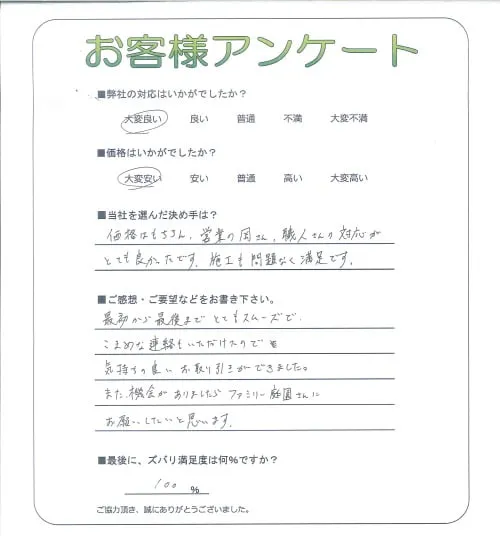 お客様アンケート
■弊社の対応はいかがでしたか？
大変良い 良い 普通 不満 大変不満
■価格はいかがでしたか？
大変安い 安い 普通 高い 大変高い
■当社を選んだ決め手は？
価格はもちろん、営業の岡さん、職人さんの対応が
とても良かったです。施工も問題なく満足です。
■ご感想・ご要望などをお書き下さい。
最初から最後までとてもスムーズで、
こまめな連絡もいただけたので
気持ちの良いお取り引きができました。
また機会がありましたらファミリー庭園さんに
お願いしたいと思います。
■最後に、ズバリ満足度は何％ですか？
100 %
ご協力頂き、誠にありがとうございました。